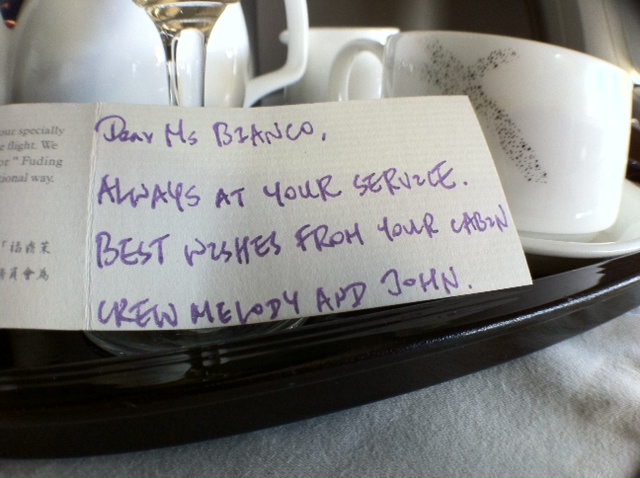 our specially
e flight. We
or " Fuding
tional way.
「福鼎茉
員會為
Dear Ms BIANCO,
ALWAYS AT YOUR SERVICE.
BEST WISHES FROM YOUR CABIN
CREW MELODY AND JOHN.